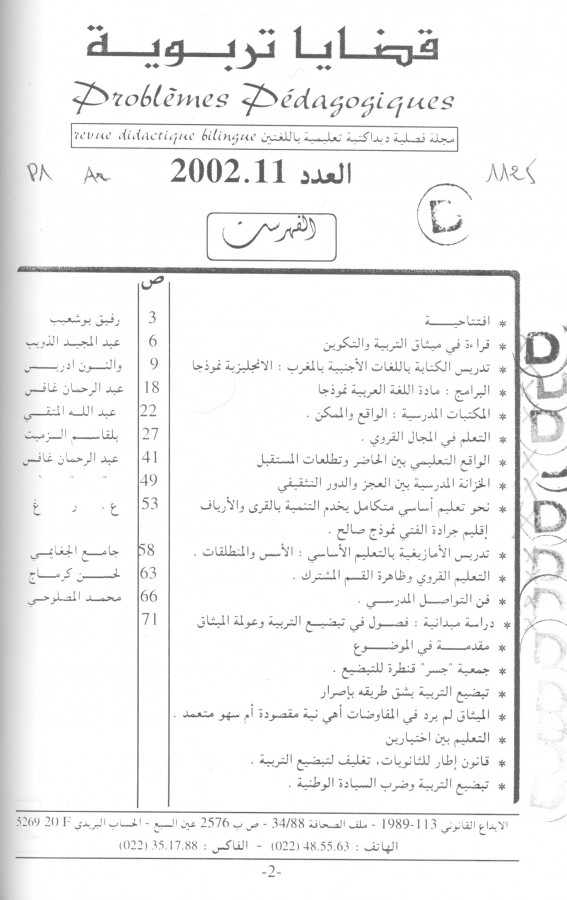 قضايا تربوية
Problèmes Pédagogiques
مجلة فصلية ديداكتية تعليمية باللغتين revue didactique bilingue
العدد 2002.11
P1 Ar 1125
D
الفهرست
ص
* افتتاحيـــة 3 رفيق بوشعيب
* قراءة في ميثاق التربية والتكوين 6 عبد المجيد الذويب
* تدريس الكتابة باللغات الأجنبية بالمغرب : الانجليزية نموذجا 9 والنـــون ادريـــس
* البرامج : مادة اللغة العربية نموذجا 18 عبد الرحمان غافس
* المكتبات المدرسية : الواقع والممكن . 22 عبد اللـه المتقـي
* التعلم في المجال القروي . 27 بلقاسم الـزميت
* الواقع التعليمي بين الحاضر وتطلعات المستقبل 41 عبد الرحمان غافس
* الخزانة المدرسية بين العجز والدور التثقيفي 49 " " "
* نحو تعليم أساسي متكامل يخدم التنمية بالقرى والأرياف 53 ع . ر غ
إقليم جرادة الفتي نموذج صالح .
* تدريس الأمازيغية بالتعليم الأساسي : الأسس والمنطلقات . 58 جامـع الجغايمي
* التعليم القروي وظاهرة القسم المشترك . 63 لحسـن كرمـاج
* فـن التواصـل المدرسـي . 66 محمـد المصلوحي
* دراسة ميدانية : فصول في تبضيع التربية وعولمة الميثاق 71
* مقدمـــة في الموضـــوع
* جمعية "جسر" قنطرة للتبضيع .
* تبضيع التربية يشق طريقه بإصرار
* الميثاق لم يرد في المفاوضات أهي نية مقصودة أم سهو متعمد .
* التعليم بين اختيارين
* قانون إطار للثانويات، تغليف لتبضيع التربية .
* تبضيع التربية وضرب السيادة الوطنية .
الايداع القانوني 113-1989 - ملف الصحافة 34/88 - ص ب 2576 عين السبع - الحساب البريدي 5269 20 F
الهاتف : 48.55.63 (022) - الفاكس : 35.17.88 (022)
-2-